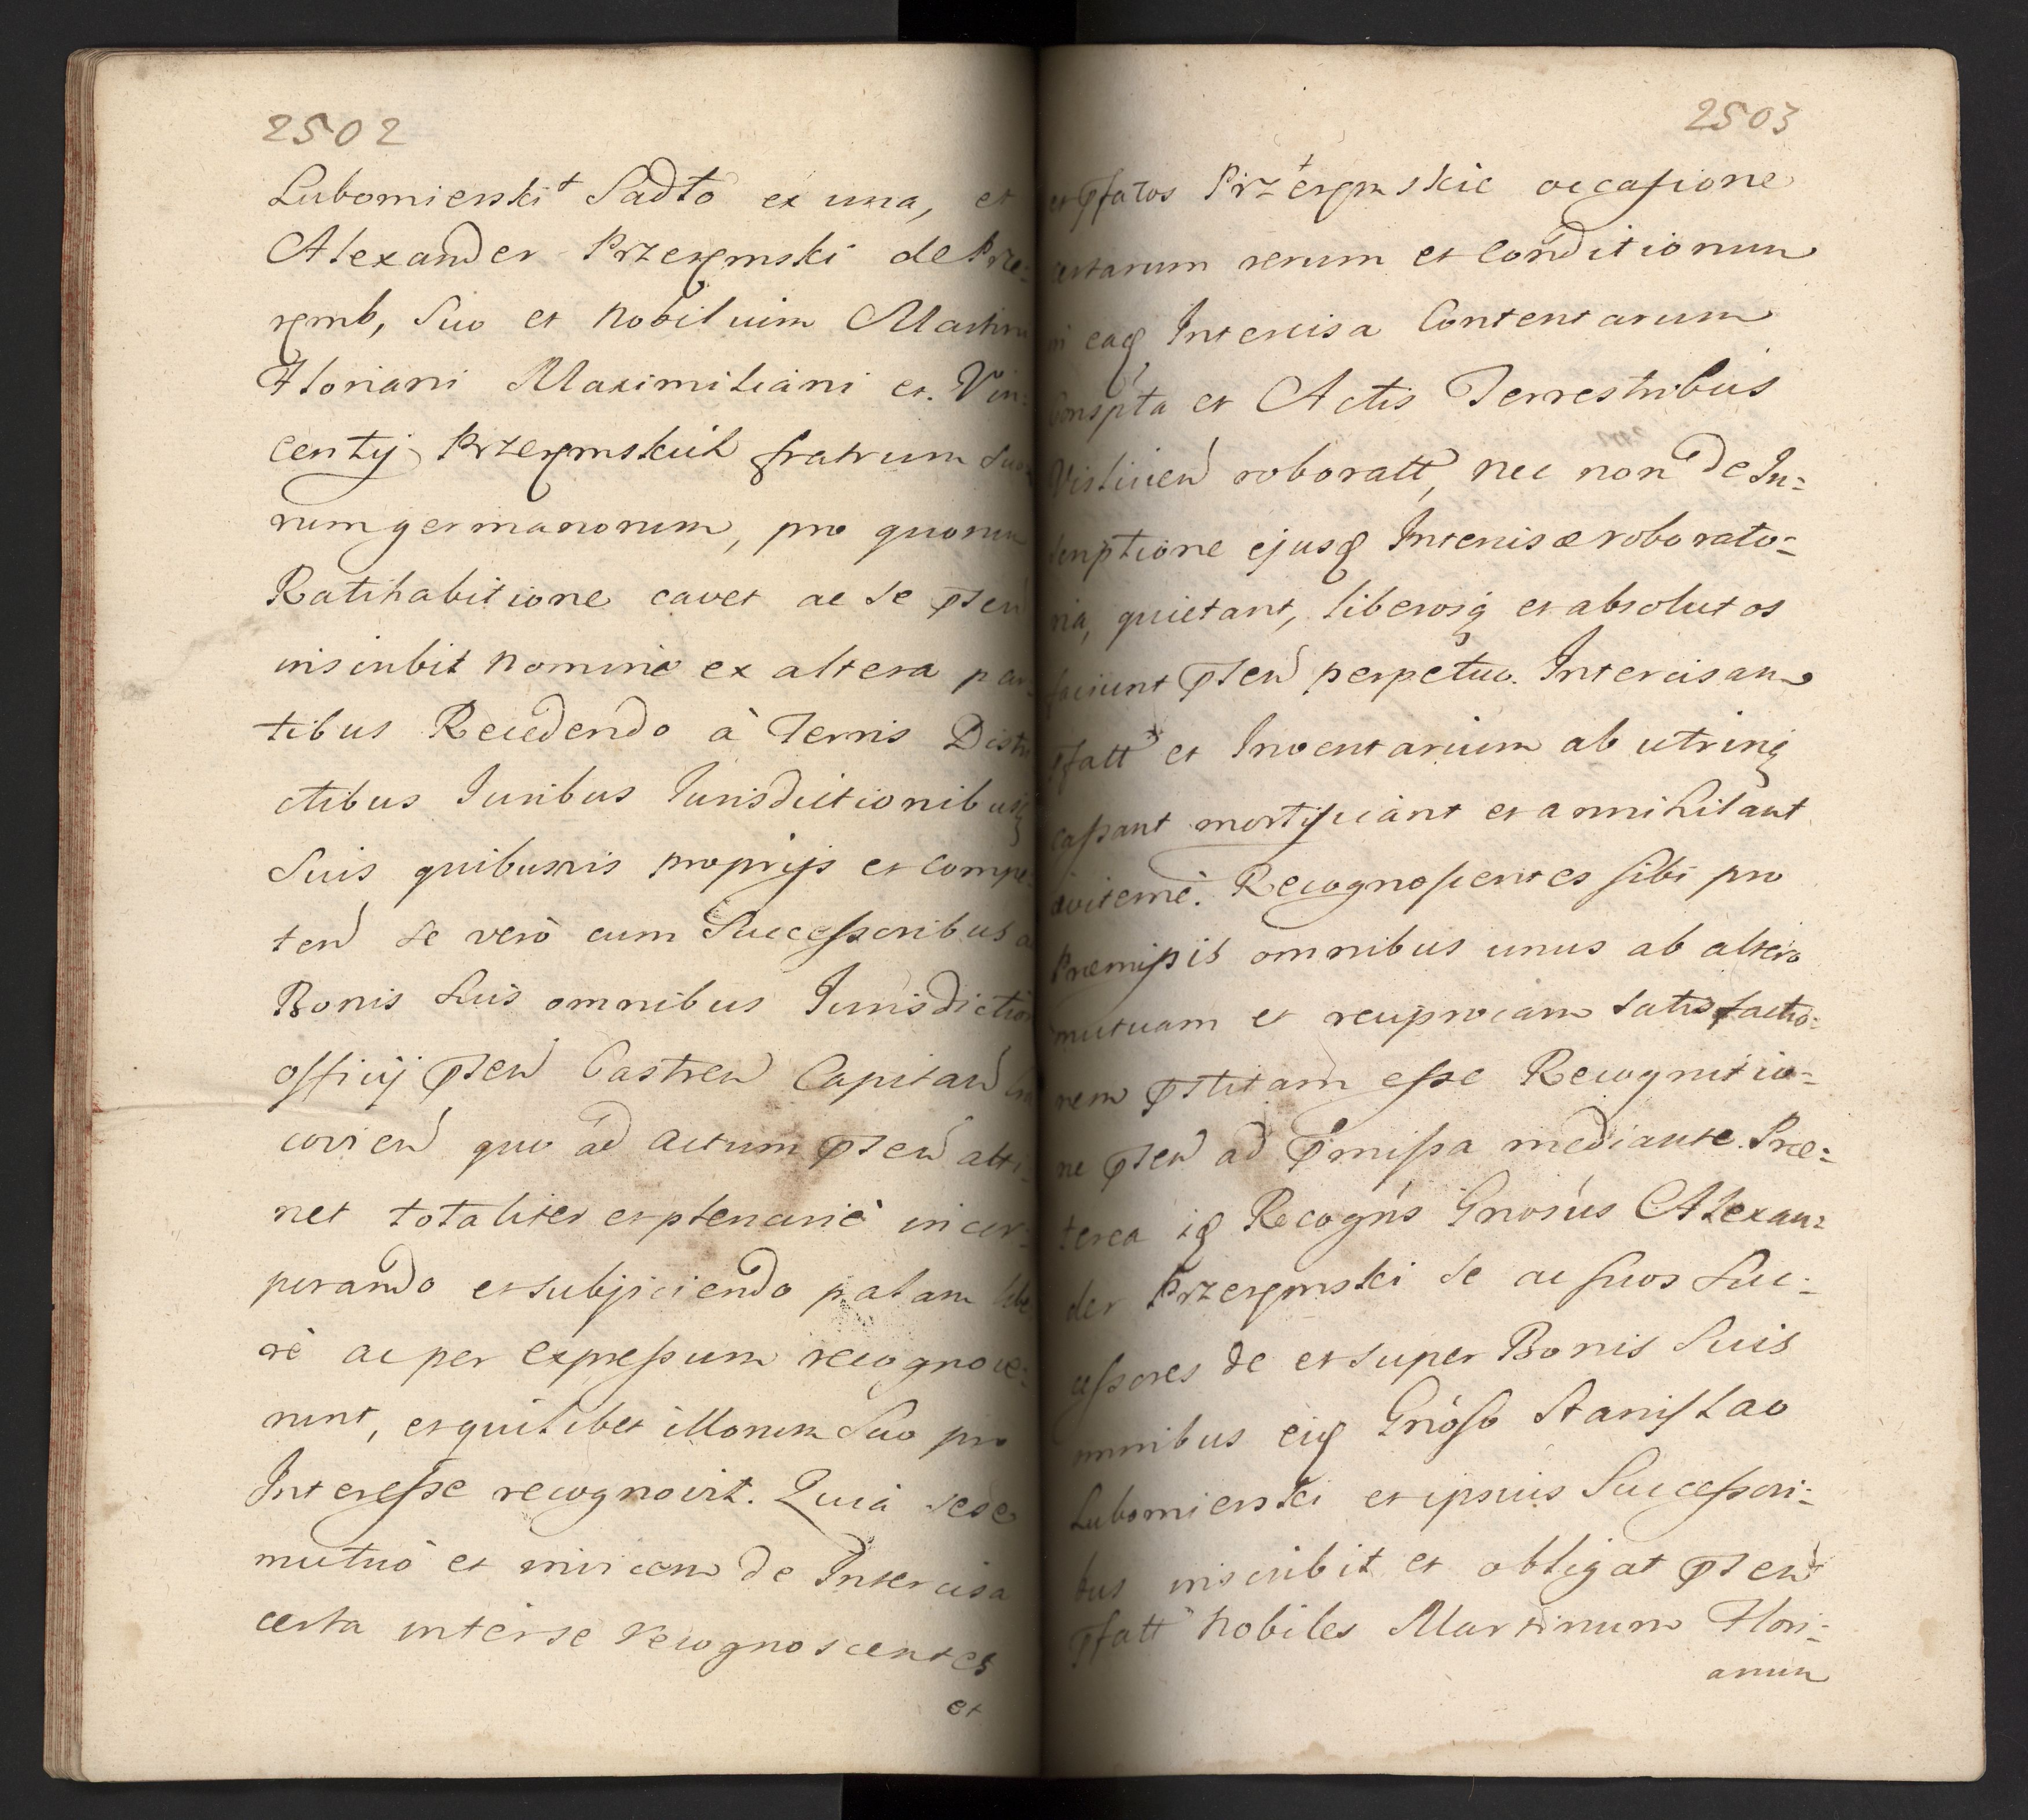 2502
Lubomierski Sadto ex una, et
Alexander Przerembski de Prze:
remb, Suo et Nobilium Martini
Floriani Maximiliani et Vin:
centij Przerembskich fratrum Suo
rum germanorum, pro quorum
Ratihabitione cavet ac se pnten
inscribit nomine ex altera par
tibus Recedendo à Terris Distri
ctibus Juribus Jurisdictionibusq
Suis quibusvis proprijs et compe:
ten se verò cum Successoribus ac
Bonis Suis omnibus Jurisdictioni
officij pnten Castren Capitan Cra
covien quo ad actum pnten atti:
net totaliter et plenariè incor:
porando et subjiciendo palam libe
rè ac per expressum recognove:
runt, et quilibet illorum Suo pro
Interesse recognovit. Quià sese
mutuò et invicem de Intercisa
certa inter se recognoscentes
et
2503
et pfatos Przerembskie occasione
certarum rerum et Conditionum
in eaq Intercisa Contentarum
Conspta et Actis Terrestribus
Vislicien roboratt, nec non de In:
scriptione ejusq Intercisæ roborato:
ria, quietant, liberosq et absolutos
faciunt pnten perpetuo. Intercisam
pfatt et Inventarium ab utrinq
cassant mortificant et annihilant
æviternè. Recognoscentes sibi pro
Præmissis omnibus unus ab altero
mutuam et reciprocam satisfactio:
nem pstitam esse Recognitio:
ne pnten ad pmissa mediante. Præ:
terea iq Recogns Gnosus Alexan:
der Przerembski se ac suos Suc:
cessores de et super Bonis Suis
omnibus eiq Gnoso Stanislao
Lubomierski et ipsius Successori:
bus inscribit et obligat pnten
pfatt Nobiles Martinum Flori:
anum